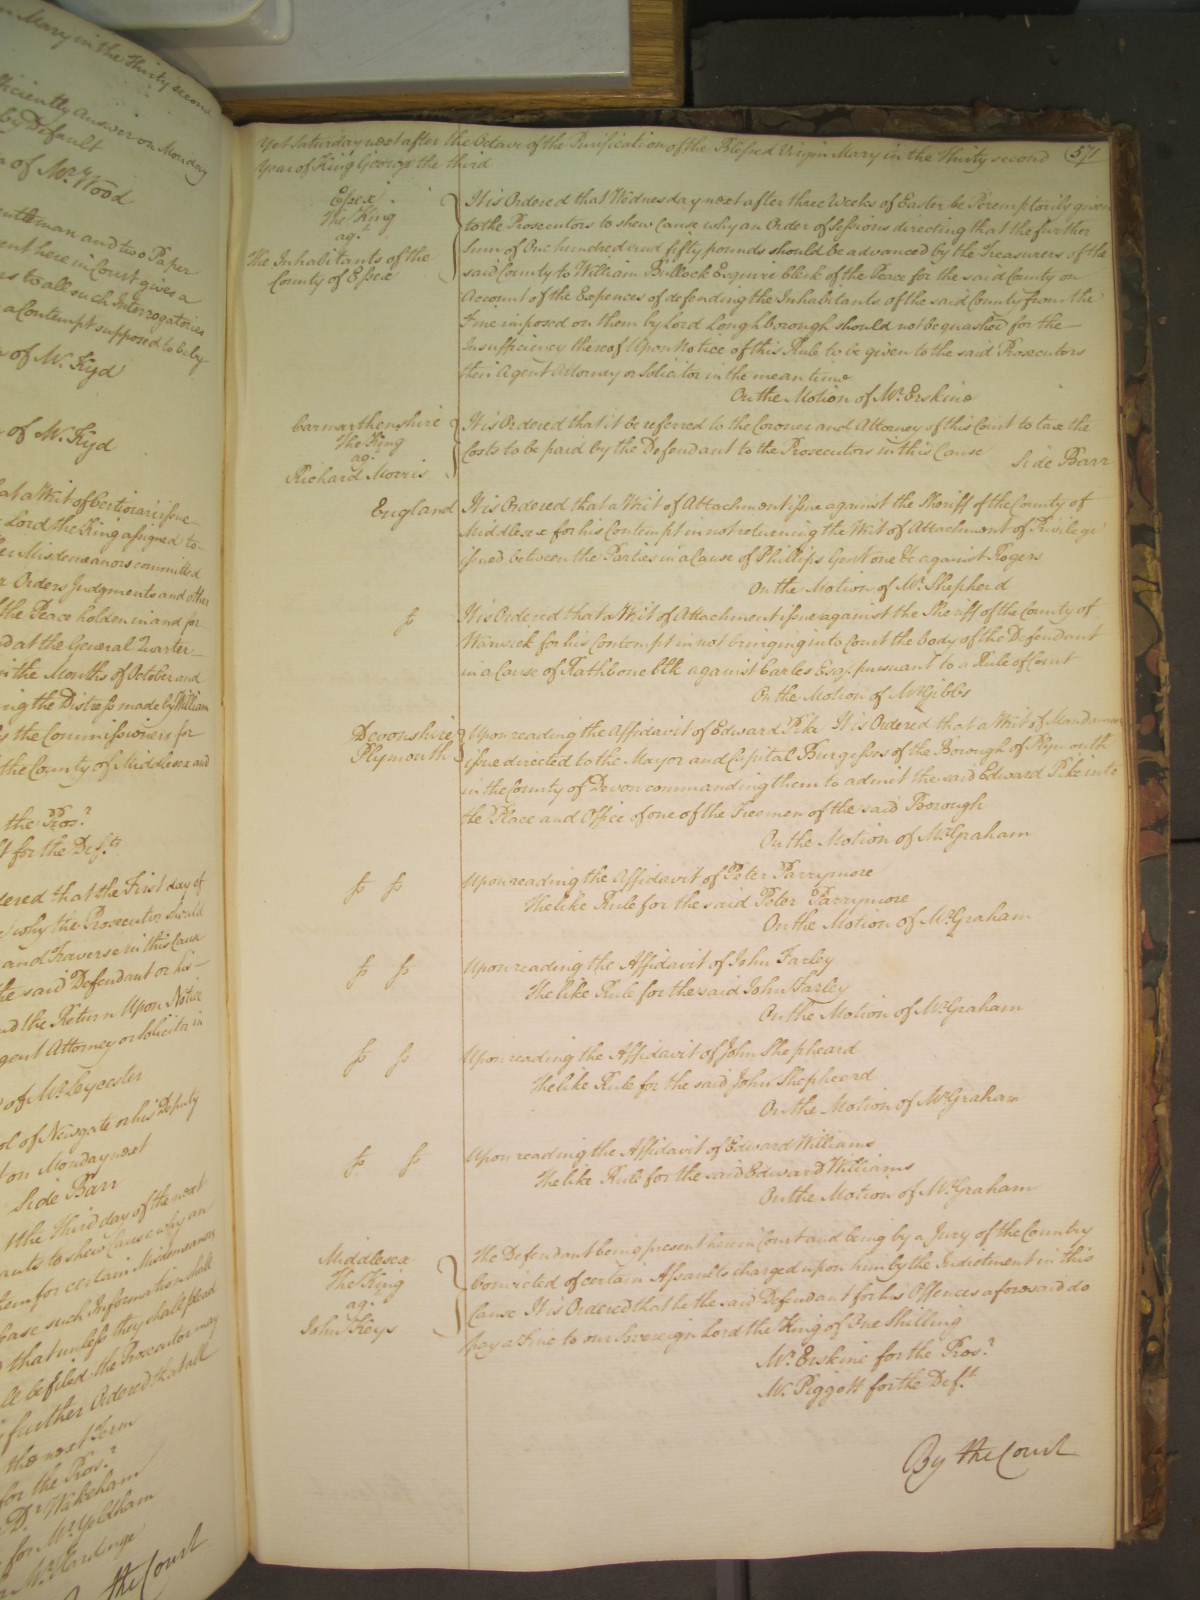 n Mary in the thirty second
fficiently Answer on Monday
by Default
n of Mr. Wood
entleman and two Paper
ent here in Court gives a
rs to all such Interrogatories
a Contempt supposed to be by
n of Mr. Kyd
n of Mr. Kyd
at a Writ of Certiorari issue
Lord the King assigned to
er Misdemeanors committed
r Orders Judgments and other
the Peace holden in and for
d at the General Quarter
in the Months of October and
ing the Distress made by William
the Commissioners for
the County of Middlesex and
the Pros.r
t for the Def.t
dered that the First day of
why the Prosecutor should
and Traverse in this Cause
the said Defendant or his
nd the Return Upon Notice
gent Attorney or Solicitor in
of Mr. Leycester
ol of Newgate or his Deputy
on Monday next
Side Barr
the third day of the next
ants to shew Cause why an
them for certain Misdemeanors
case such Information shall
that unless they shall plead
ll be filed the Prosecutor may
further Ordered that all
the next Term
for the Pros.r
Dr. Wakeham
for Mr. Yeldham
Mr. Hardinge
By the Court
Yet Saturday next after the Octave of the Purification of the Blessed Virgin Mary in the thirty second 571
Year of King George the third
Essex
The King
ag.t
The Inhabitants of the
County of Essex
It is Ordered that Wednesday next after three Weeks of Easter be Peremptorily given
to the Prosecutors to shew Cause why an Order of Sessions directing that the further
Sum of One hundred and fifty pounds should be advanced by the Treasurers of the
said County to William Bullock Esquire Clerk of the Peace for the said County on
Account of the Expences of defending the Inhabitants of the said County from the
Fine imposed on them by Lord Loughborough should not be quashed for the
Insufficiency thereof Upon Notice of this Rule to be given to the said Prosecutors
their Agent Attorney or Solicitor in the mean time
On the Motion of Mr. Erskine
Carmarthenshire
The King
ag.t
Richard Morris
It is Ordered that it be referred to the Coroner and Attorney of this Court to tax the
Costs to be paid by the Defendant to the Prosecutors in this Cause
Side Barr
England
It is Ordered that a Writ of Attachment issue against the Sheriff of the County of
Middlesex for his Contempt in not returning the Writ of Attachment of Privilege
issued between the Parties in a Cause of Phillips Gent one &c against Rogers
On the Motion of Mr. Shepherd
Do
It is Ordered that a Writ of Attachment issue against the Sheriff of the County of
Warwick for his Contempt in not bringing into Court the body of the Defendant
in a Cause of Rathbone &c against Carles Esq. pursuant to a Rule of Court
On the Motion of Mr Gibbs
Devonshire
Plymouth
Upon reading the Affidavit of Edward Pike It is Ordered that a Writ of Mandamus
issue directed to the Mayor and Capital Burgesses of the Borough of Plymouth
in the County of Devon commanding them to admit the said Edward Pike into
the Place and Office of one of the Freemen of the said Borough
On the Motion of Mr Graham
Do Do
Upon reading the Affidavit of Peter Parrymore
The like Rule for the said Peter Parrymore
On the Motion of Mr Graham
Do Do
Upon reading the Affidavit of John Farley
The like Rule for the said John Farley
On the Motion of Mr Graham
Do Do
Upon reading the Affidavit of John Shepheard
The like Rule for the said John Shepheard
On the Motion of Mr Graham
Do Do
Upon reading the Affidavit of Edward Williams
The like Rule for the said Edward Williams
On the Motion of Mr Graham
Middlesex
The King
ag.t
John Keys
The Defendant being present here in Court and being by a Jury of the Country
Convicted of certain Assaults charged upon him by the Indictment in this
Cause It is Ordered that he the said Defendant for his Offences aforesaid do
pay a Fine to our Sovereign Lord the King of One Shilling
Mr. Erskine for the Pros.r
Mr. Piggott for the Def.t
By the Court